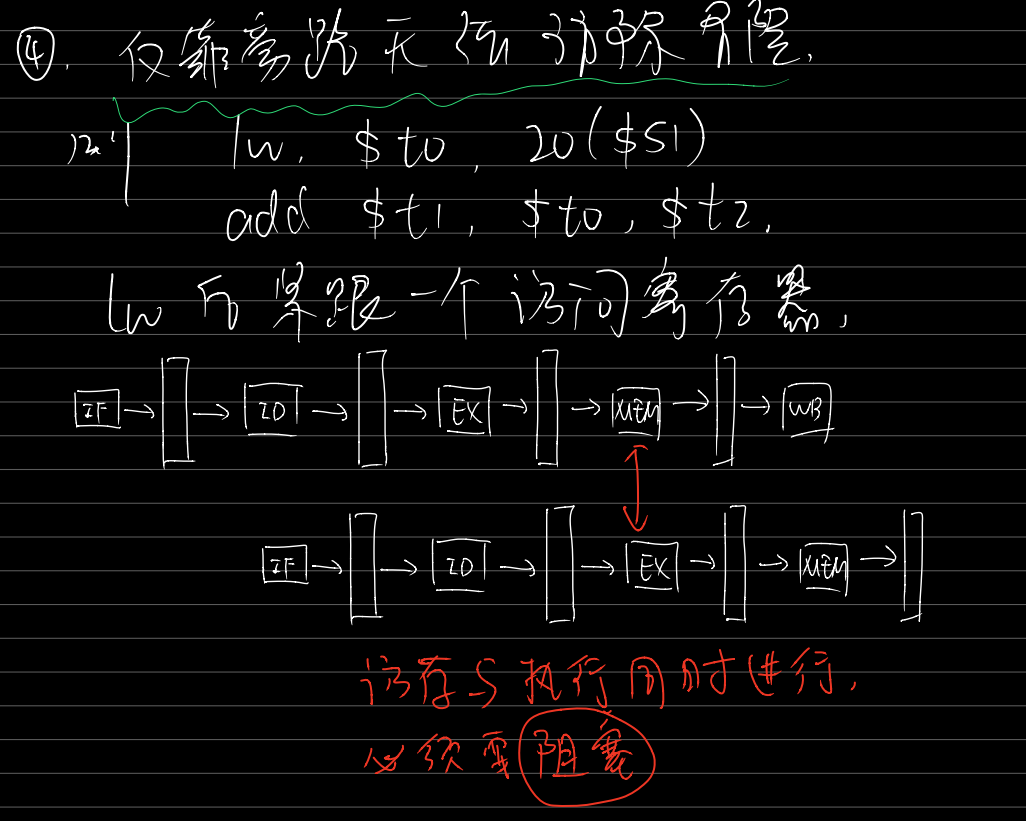 ④. 仅靠旁路无法消除冒险.
lw. $t0, 20($s1)
add $t1, $t0, $t2.
lw后紧跟一个访问寄存器,
IF → → ID → → EX → → MEM → → WB
IF → → ID → → EX → → MEM →
访存与执行同时进行,
必须要阻塞